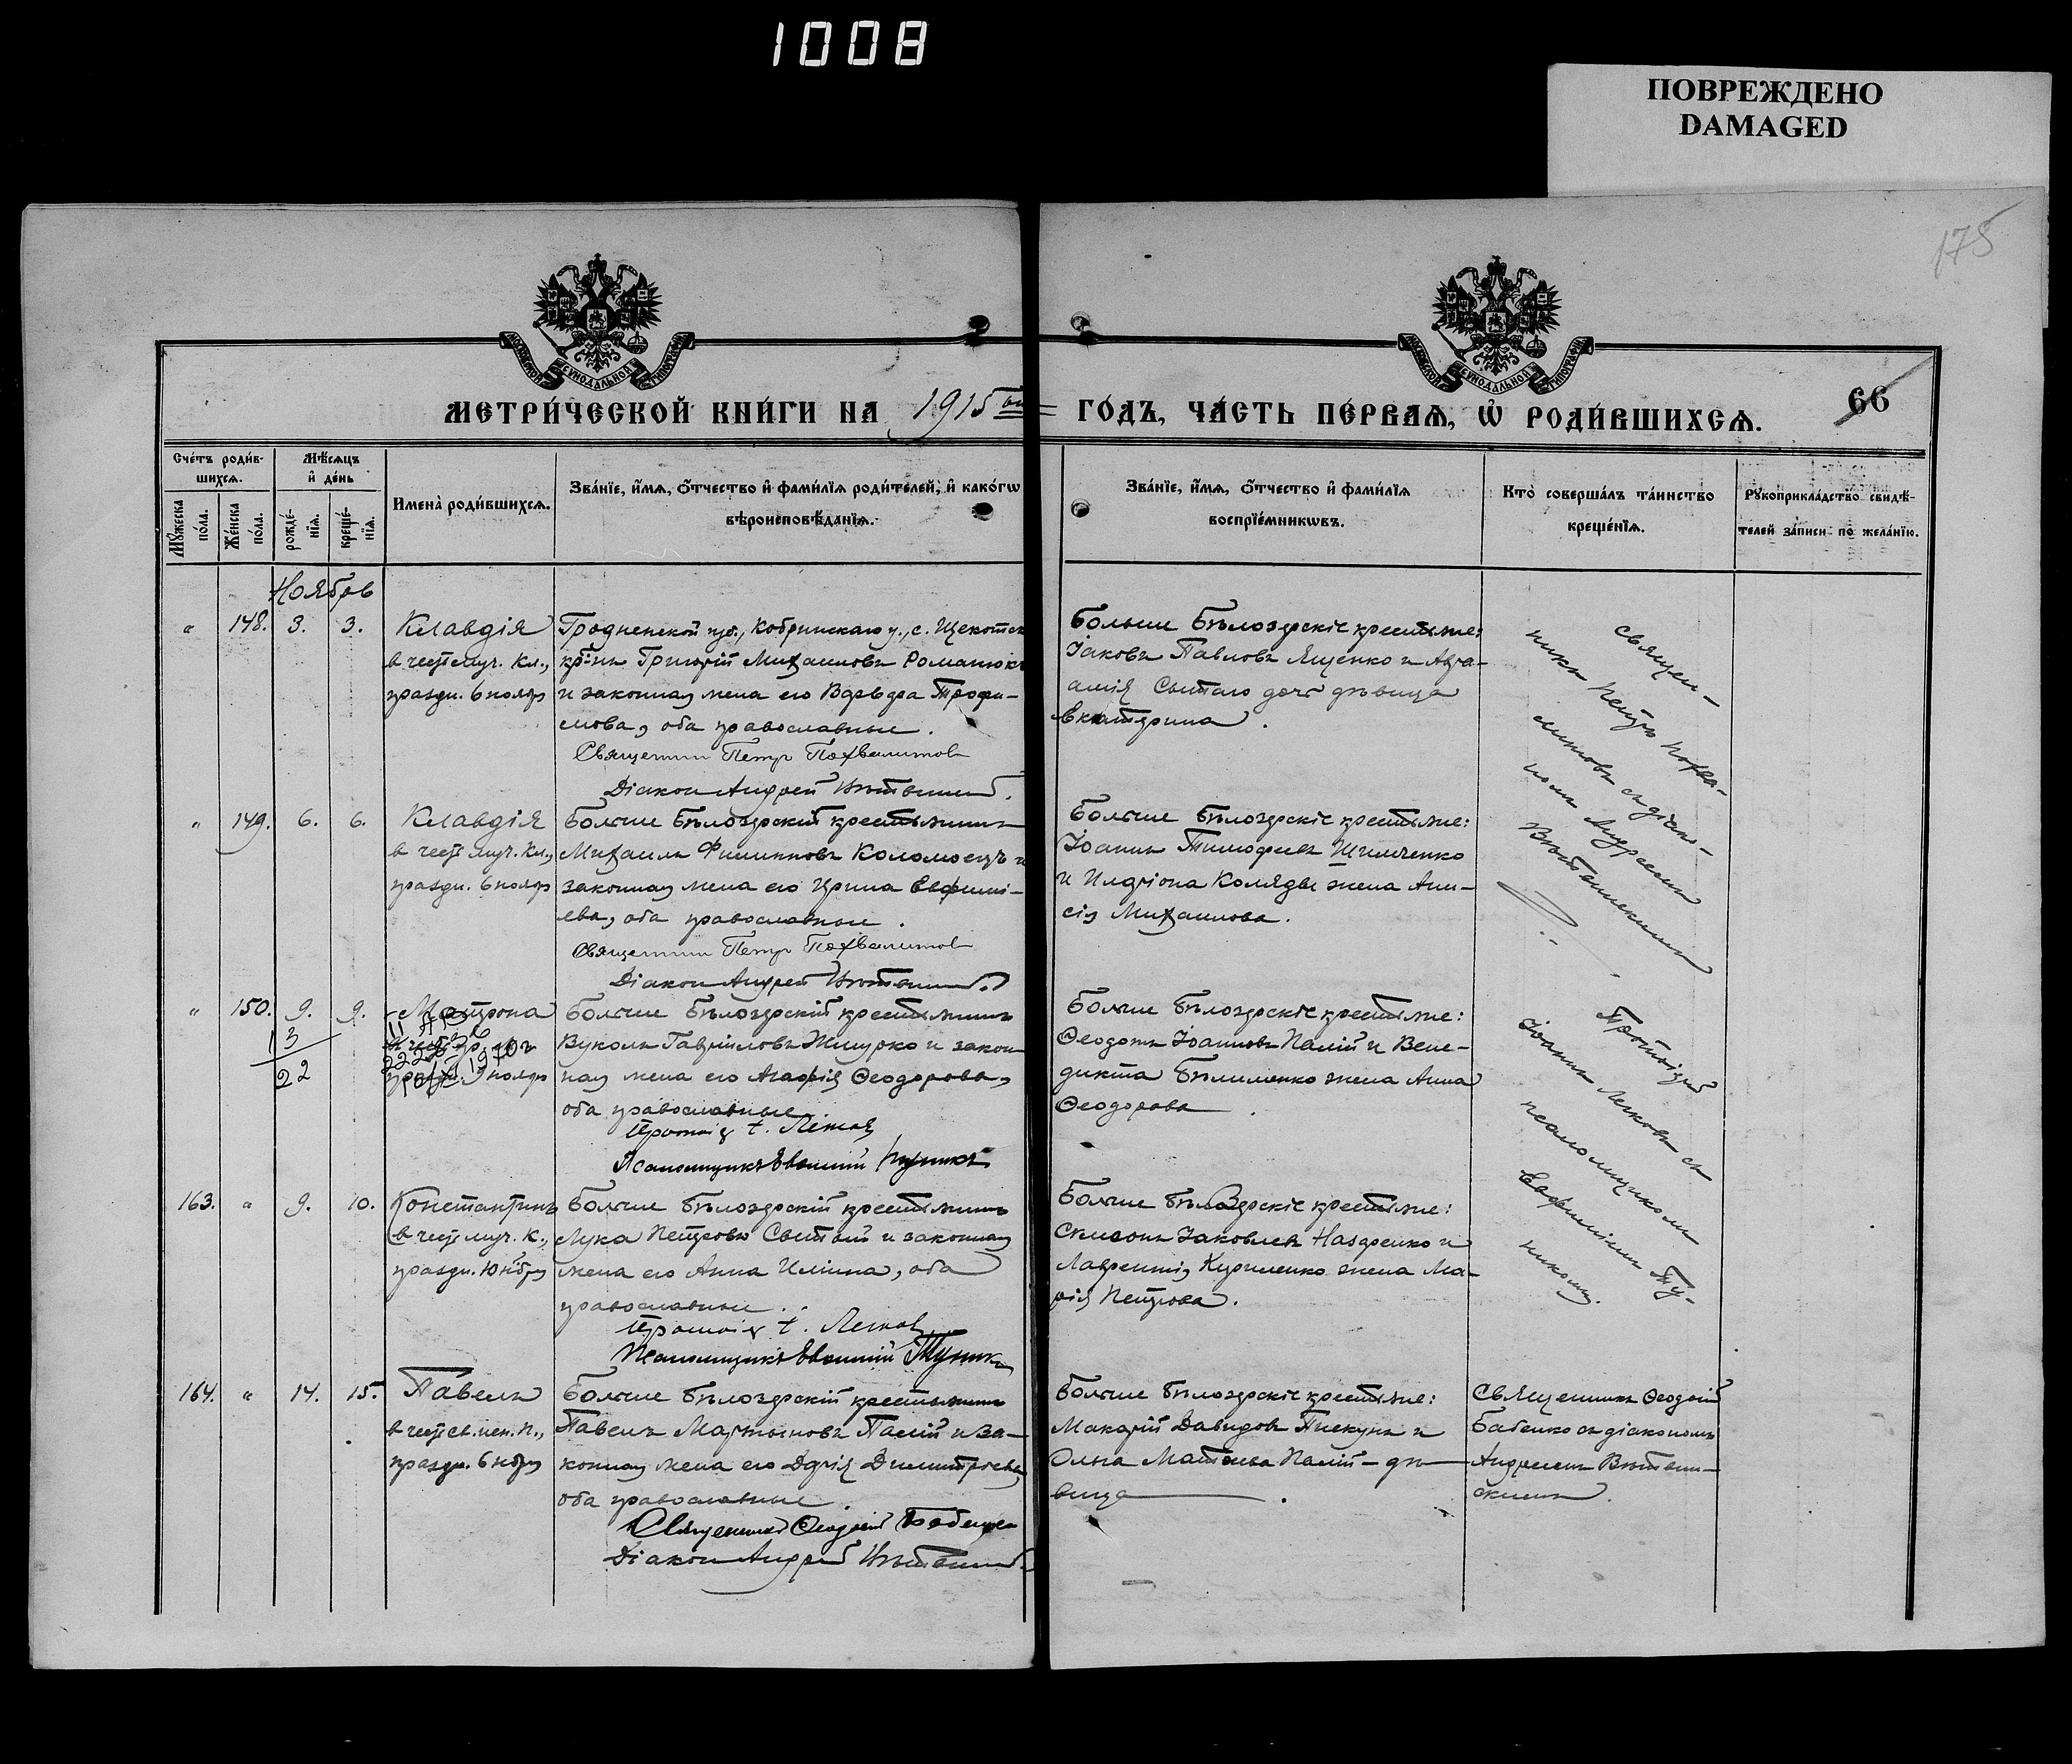 1008
ПОВРЕЖДЕНО
DAMAGED
175
МОСКОВСКОЙ СѴНОДАЛЬНОЙ ТИПОГРАФІИ
МОСКОВСКОЙ СѴНОДАЛЬНОЙ ТИПОГРАФІИ
МЕТРИ́ЧЕСКОЙ КНИ́ГИ НА 1915 ый ГО́ДЪ, ЧА́СТЬ ПЕ́РВАѦ, Ѡ҆ РОДИ́ВШИХСѦ.
66
Сче́тъ роди́в-
шихсѧ.
Мѣ́сѧцъ
и҆ де́нь
Мꙋ́жеска
по́ла.
Же́нска
по́ла.
рожде́-
нїѧ.
креще́-
нїѧ.
И҆мена̀ роди́вшихсѧ.
Зва́нїе, и҆́мѧ, ѻ҆́тчество и҆ фами́лїѧ роди́телей, и҆ како́гѡ
вѣроисповѣ́данїѧ.
Зва́нїе, и҆́мѧ, ѻ҆́тчество и҆ фами́лїѧ
воспрїе́мникѡвъ.
Кто̀ соверша́лъ та́инство
креще́нїѧ.
Рꙋкоприкла́дство свидѣ́-
телей за́писи по жела́нїю.
Ноябрь
" 148. 3. 3.
Клавдія
в честь муч. Кл.,
праздн. 6 ноябр
Гродненской губ., Кобринскаго у., с.
Григорій Михаиловъ Романюкъ
и законная жена его Варвара Трофи-
мова, оба православные.
Священник Петр Похвалитов
Діакон Андрей
Больше Бѣлозерскіе крестьяне:
Іаковъ Павловъ Яценко и
Сытаго дочь дѣвица
Екатерина.
Священ-
никъ Петръ Похва-
литовъ съ діако-
номъ Андреемъ
" 149. 6. 6.
Клавдія
в честь муч. Кл.,
праздн. 6 ноябр
Больше Бѣлозерскій крестьянинъ
Михаилъ Филипповъ Коломоецъ и
законная жена его Ирина Евфимі-
ева, оба православные.
Священник Петр Похвалитов
Діакон Андрей
Больше Бѣлозерскіе крестьяне:
Іоаннъ Тимофеевъ Шимченко
и Иларіона Коляды жена Ани-
сія Михаилова.
" 150. 9. 9.
13
22
Матрона
1970 г
9 ноябр
Больше Бѣлозерскій крестьянинъ
Вуколъ Гавріиловъ Жмурко и закон-
ная жена его Агафія Ѳеодорова,
оба православные.
Псаломщикъ Евфимій
Больше Бѣлозерскіе крестьяне:
Ѳеодотъ Іоанновъ Палій и Вене-
дикта Бѣлименко жена Анна
Ѳеодорова.
Протоіерей
Іоаннъ съ
псаломщикомъ
Евфиміемъ Ту-
никомъ.
163. " 9. 10.
Константинъ
в честь муч. К.,
праздн. 10 нбр
Больше Бѣлозерскій крестьянинъ
Лука Петровъ Сытый и законная
жена его Анна Илінна, оба
православные.
Псаломщикъ Евфимій Туник
Больше Бѣлозерскіе крестьяне:
Симеонъ Іаковлевъ Назаренко и
Лаврентія Куриленко жена Ма-
рія Петрова.
164. " 14. 15.
Павелъ
в честь св. исп. П.,
праздн. 6 нбр
Больше Бѣлозерскій крестьянинъ
Павелъ Мартыновъ Палій и за-
конная жена его Дарія Димитріева,
оба православные.
Священникъ Ѳеодосій Бабенко
Діакон Андрей
Больше Бѣлозерскіе крестьяне:
Макарій Давидовъ Пискунъ и
Ольга Матѳіева Палій – дѣ-
вица.
Священникъ Ѳеодосій
Бабенко съ діакономъ
Андреемъ